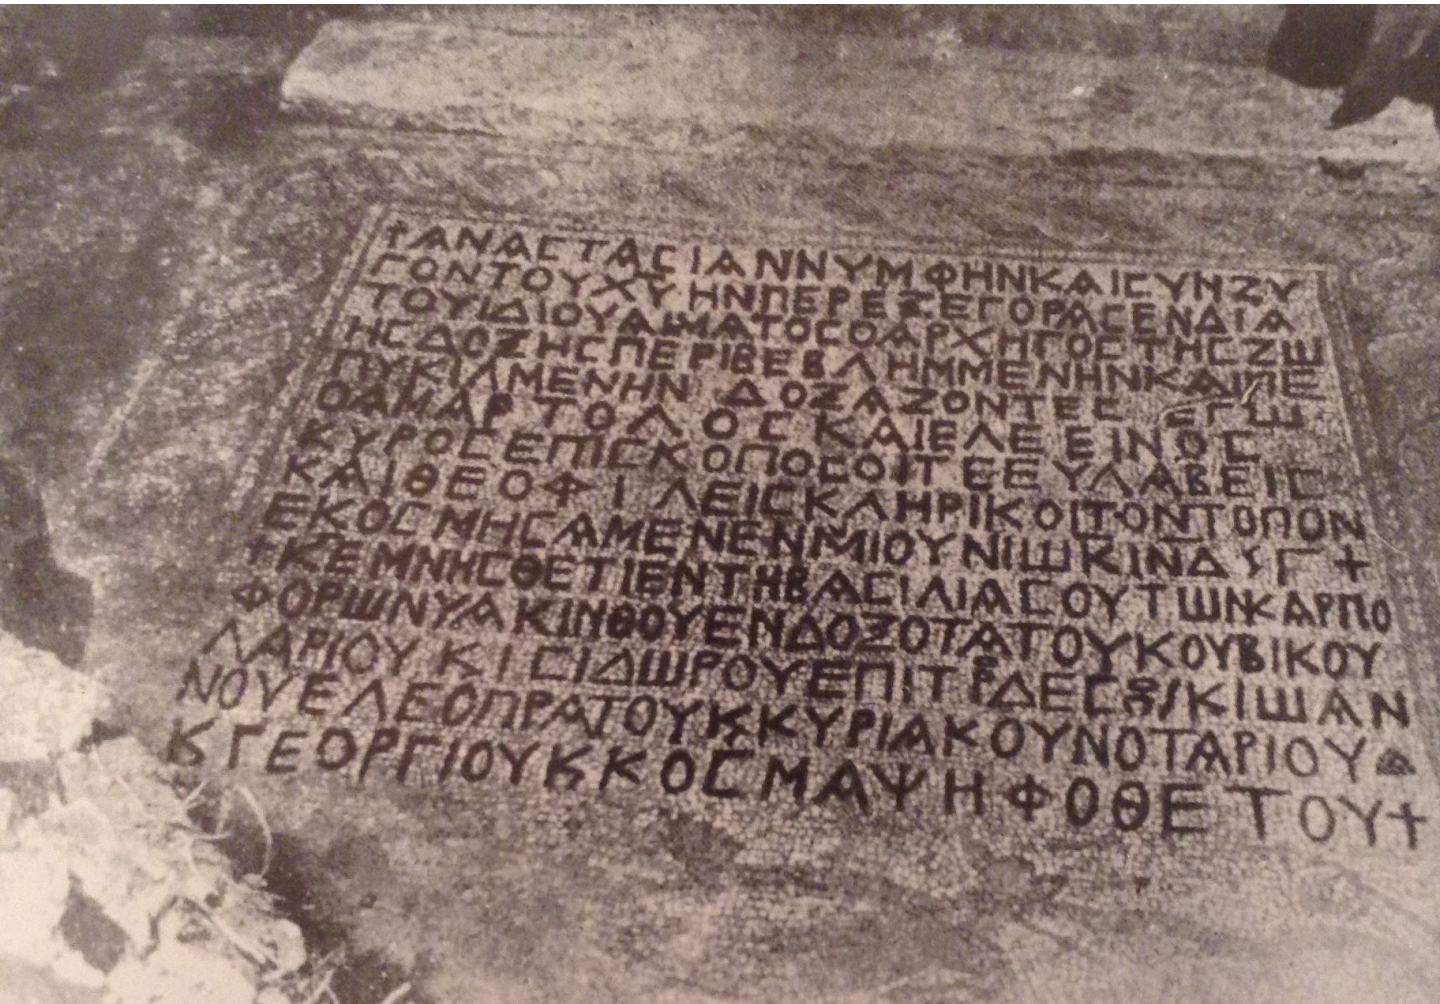 +ΑΝΑCΤΑCΙΑΝΝΥΜΦΗΝΚΑΙCΥΝΖΥ
ΓΟΝΤΟΥΧΥΗΝΠΕΡΕΞΕΓΟΡΑCΕΝΔΙΑ
ΤΟΥΙΔΙΟΥΑΙΜΑΤΟCΟΑΡΧΗΓΟCΤΗCΖШ
ΗCΔΟΞΗCΠΕΡΙΒΕΒΛΗΜΜΕΝΗΝΚΑΙΠΕ
ΠΥΚΙΛΜΕΝΗΝ ΔΟΞΑΖΟΝΤΕC ΕΓШ
ΟΑΜΑΡΤΟΛΟC ΚΑΙΕΛΕΕΙΝΟC
ΚΥΡΟCΕΠΙCΚΟΠΟCΟΙΤΕΕΥΛΑΒΕΙC
ΚΑΙΘΕΟΦΙΛΕΙCΚΛΗΡΙΚΟΙΤΟΝΤΟΠΟΝ
ΕΚΟCΜΗCΑΜΕΝΕΝΜΙΟΥΝΙШΚΙΝΔϚΓ+
+ΚΕΜΝΗCΘΕΤΙΕΝΤΗΒΑCΙΛΙΑCΟΥΤШΝΚΑΡΠΟ
ΦΟΡШΝΥΑΚΙΝΘΟΥΕΝΔΟΞΟΤΑΤΟΥΚΟΥΒΙΚΟΥ
ΛΑΡΙΟΥΚΙCΙΔШΡΟΥΕΠΙΤΡΔΕCΠϚΚΙШΑΝ
ΝΟΥΕΛΕΟΠΡΑΤΟΥΚϚΚΥΡΙΑΚΟΥΝΟΤΑΡΙΟΥ
ΚΓΕΟΡΓΙΟΥΚΚΟCΜΑΨΗΦΟΘΕΤΟΥ+